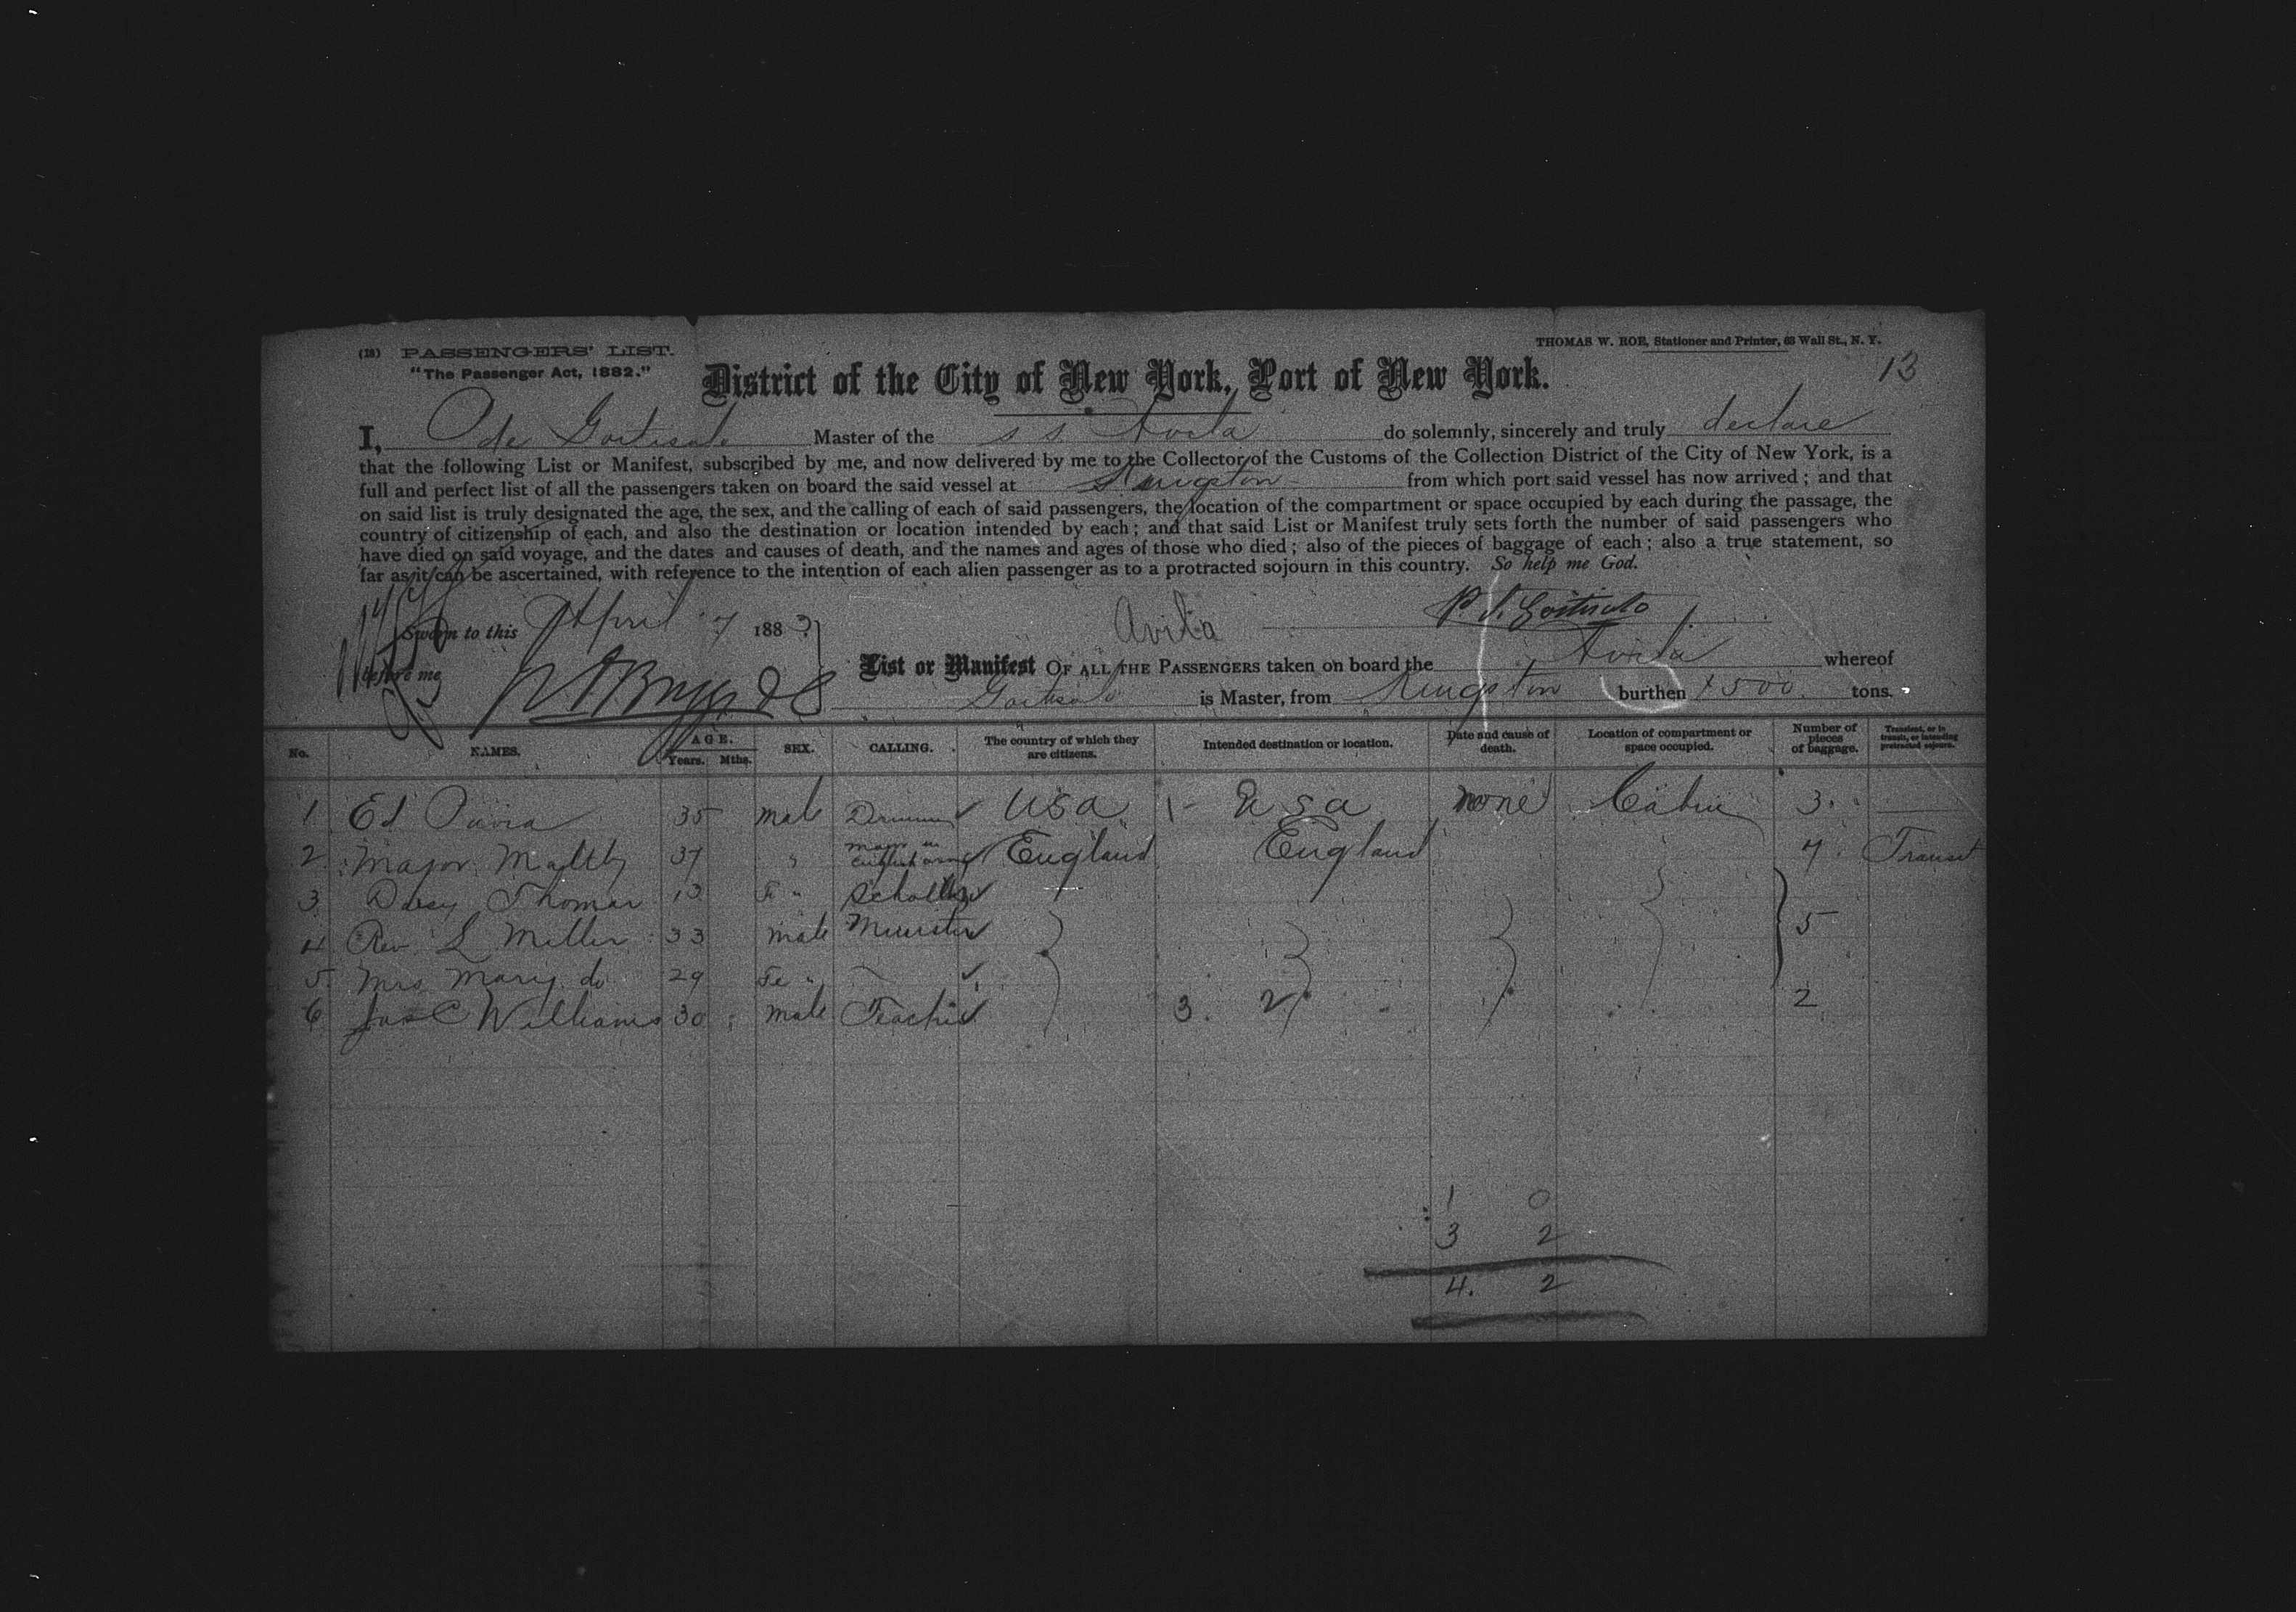 (18) PASSENGERS' LIST.
"The Passenger Act, 1882."
THOMAS W. ROE, Stationer and Printer, 63 Wall St., N. Y.
13
District of the City of New York, Port of New York.
I, P de Goitisolo Master of the S S Avila do solemnly, sincerely and truly declare
that the following List or Manifest, subscribed by me, and now delivered by me to the Collector of the Customs of the Collection District of the City of New York, is a
full and perfect list of all the passengers taken on board the said vessel at Kingston from which port said vessel has now arrived; and that
on said list is truly designated the age, the sex, and the calling of each of said passengers, the location of the compartment or space occupied by each during the passage, the
country of citizenship of each, and also the destination or location intended by each; and that said List or Manifest truly sets forth the number of said passengers who
have died on said voyage, and the dates and causes of death, and the names and ages of those who died; also of the pieces of baggage of each; also a true statement, so
far as it can be ascertained, with reference to the intention of each alien passenger as to a protracted sojourn in this country. So help me God.
Sworn to this April 7 1883
Avila
before me
List or Manifest OF ALL THE PASSENGERS taken on board the Avila whereof
is Master, from Kingston burthen 1500 tons.
No. NAMES. AGE. Years. Mths. SEX. CALLING. The country of which they are citizens. Intended destination or location. Date and cause of death. Location of compartment or space occupied. Number of pieces of baggage. Transient, or in transit, or intending protracted sojourn.
1 Ed 35 male USA 1 - USA none Cabin 3.
2. Major Maltby 37 " Major in English army England England 4. Transit
3. Daisy Thomas 13 Fe " Schollar
4 Rev L Miller 33 male Minister 5
5. Mrs Mary do 29 Fe "
6 Jas C Williams 30 male Teacher 3. 2 2
1 0
3 2
4. 2